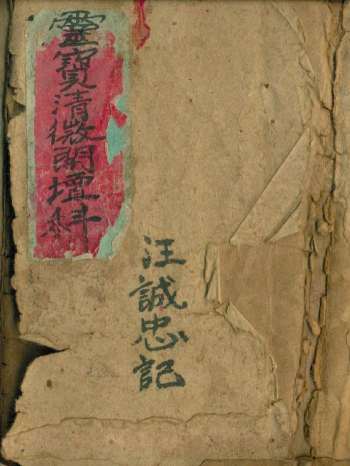 靈寳清微開壇科
汪誠忠記